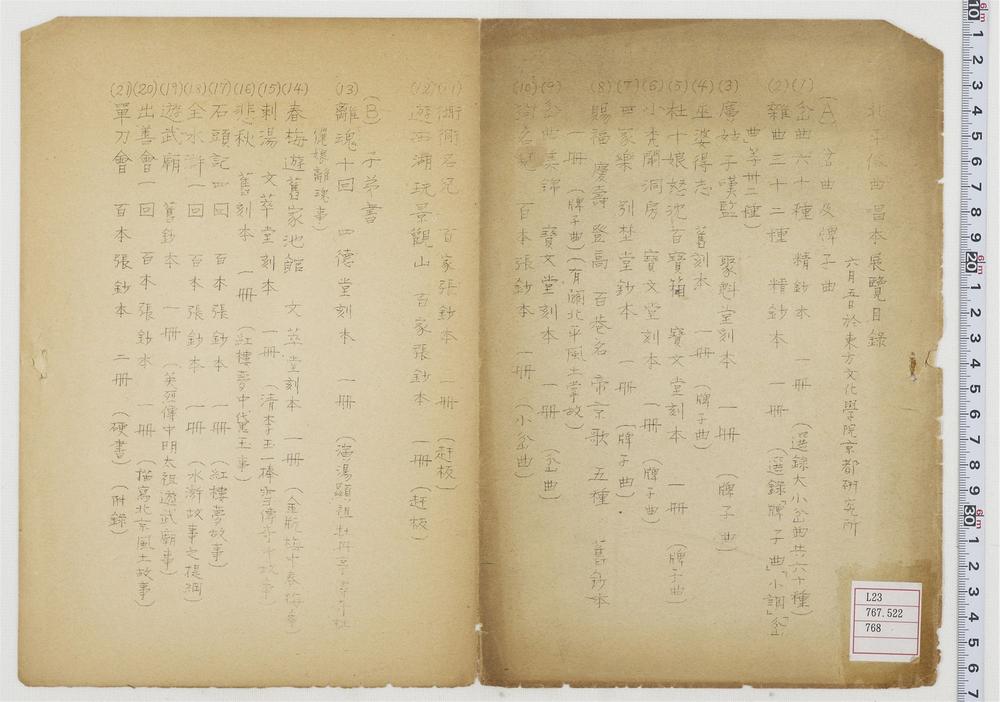 北平俗曲唱本展覽目錄
六月五日於東方文化學院京都研究所
(A) 岔曲及牌子曲
(1) 岔曲六十種 精鈔本 一冊 (選錄大小岔曲共六十種)
(2) 雜曲三十二種 精鈔本 一冊 (選錄「牌子曲」「小調」「岔
曲」等卅二種)
(3) 廣姑子嘆監 聚魁堂刻本 一冊 (牌子曲)
(4) 巫婆得志 舊刻本 一冊 (牌子曲)
(5) 杜十娘怒沈百寶箱 寶文堂刻本 一冊 (牌子曲)
(6) 小禿鬧洞房 寶文堂刻本 一冊 (牌子曲)
(7) 四家樂 別埜堂鈔本 一冊 (牌子曲)
(8) 賜福 慶壽 登高 百巷名 帝京歌 五種 舊鈔本
一冊 (牌子曲) (有關北平風土掌故)
(9) 岔曲集錦 寶文堂刻本 一冊 (岔曲)
(10) 百本張鈔本 一冊 (小岔曲)
(11) 衚衕名兒 百家張鈔本 一冊 (趕板)
(12) 遊西湖玩景觀山 百家張鈔本 一冊 (趕板)
(B) 子弟書
(13) 離魂十回 四德堂刻本 一冊 (演湯顯祖牡丹亭
儷娘離魂事)
(14) 春梅遊舊家池館 文萃堂刻本 一冊 (金瓶梅中春梅事)
(15) 刺湯 文萃堂刻本 一冊 (清李玉一棒雪傳奇中故事)
(16) 悲秋 舊刻本 一冊 (紅樓夢中黛玉事)
(17) 石頭記四回 百本張鈔本 一冊 (紅樓夢故事)
(18) 全水滸一回 百本張鈔本 一冊 (水滸故事之提綱)
(19) 遊武廟 舊鈔本 一冊 (英烈傳中明太祖遊武廟事)
(20) 出善會一回 百本張鈔本 一冊 (描寫北京風土故事)
(21) 單刀會 百本張鈔本 二冊 (硬書) (附錄)
L23
767.522
768